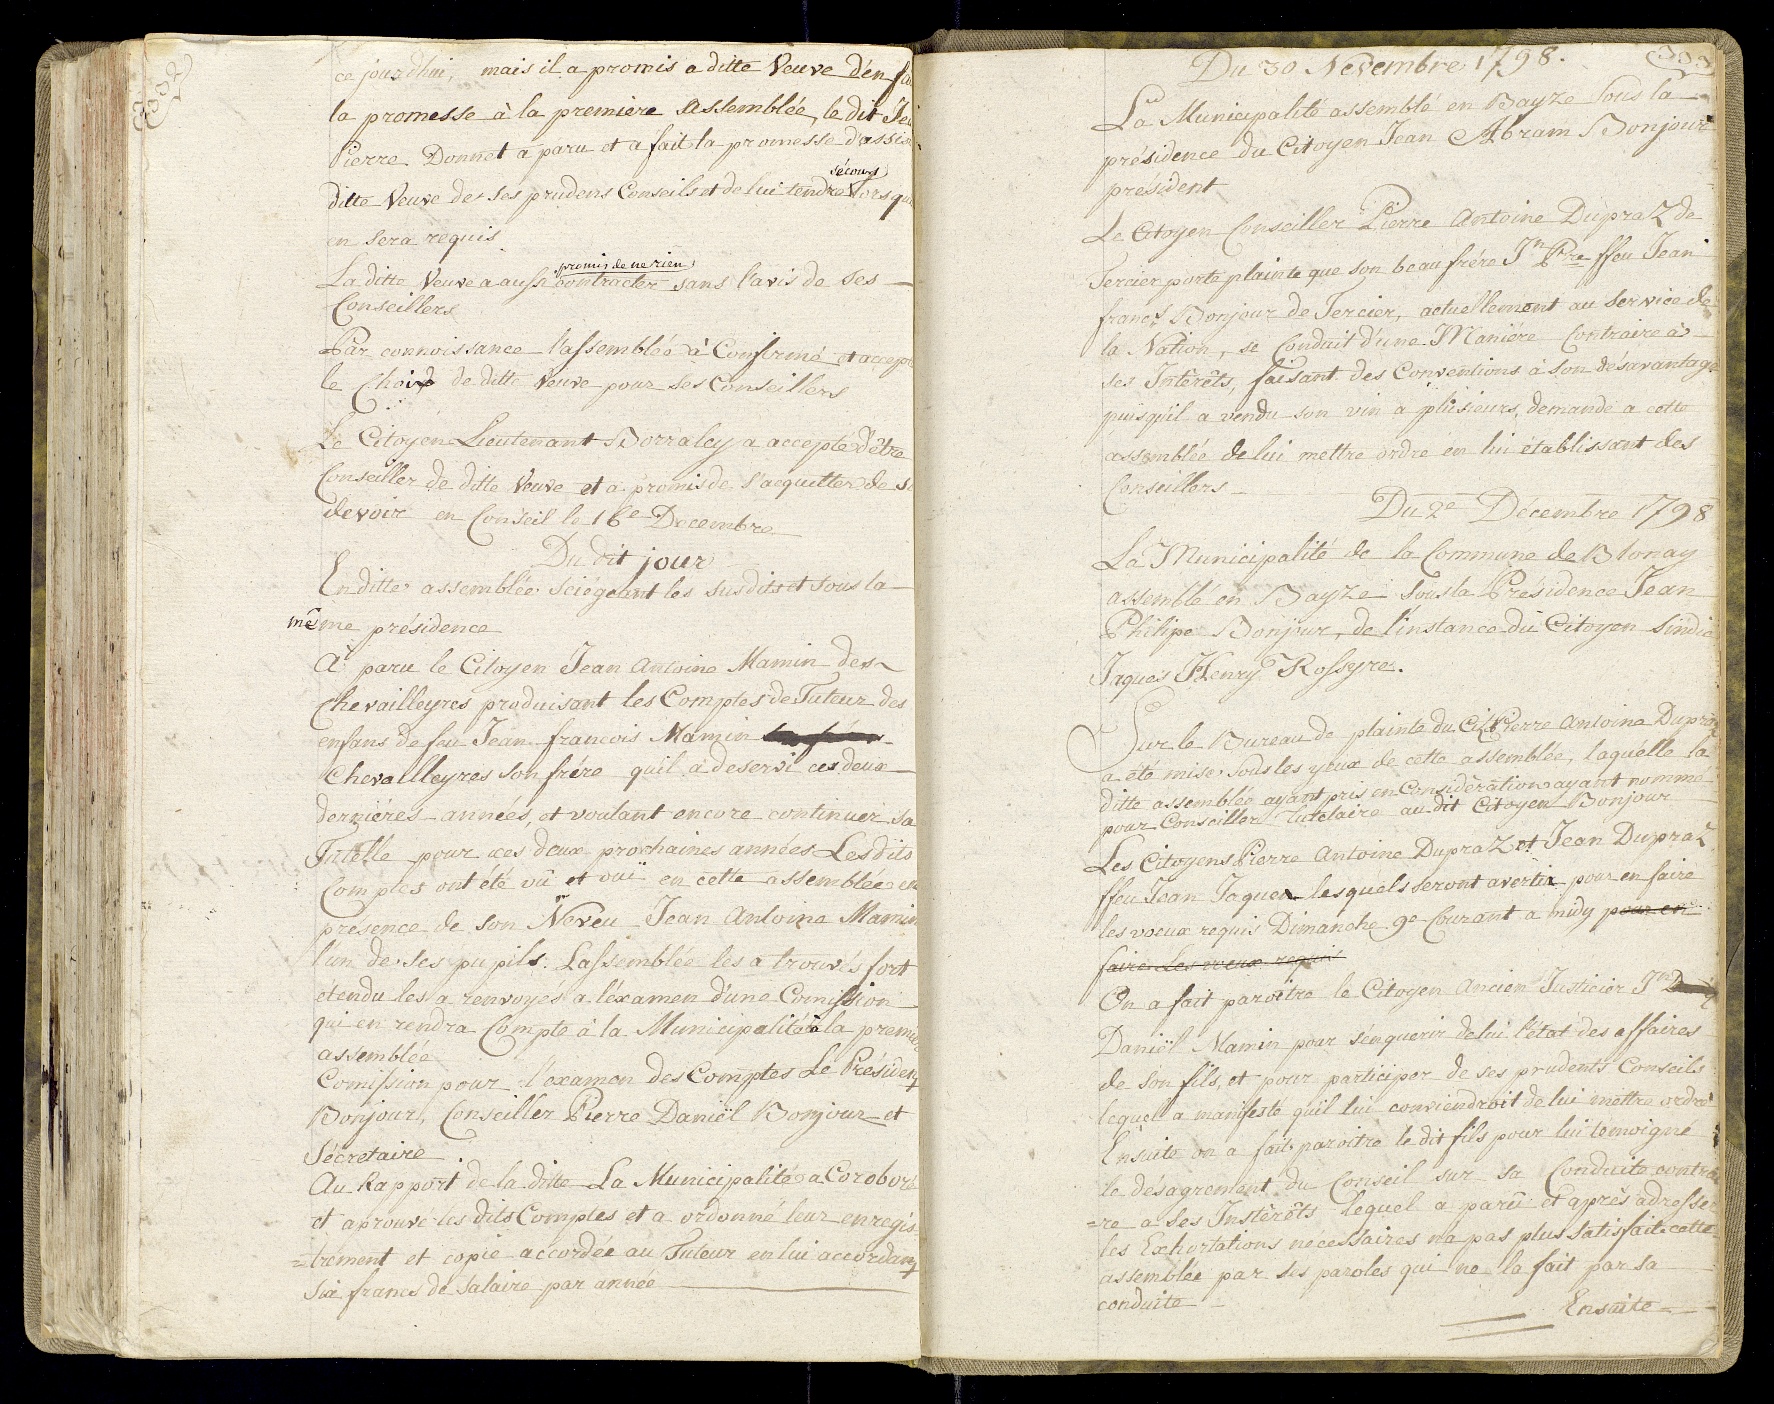 302
ce jourdhui, mais il a promis a ditte Veuve d'en fai
la promesse à la premiere Assemblée, le dit Je
Pierre Donnet a paru et a fait la promesse d'assis
sécours
ditte Veuve de ses prudens Conseils et de lui tendre lorsqu
en sera requis
promis de ne rien
La ditte Veuve a aussi contracter sans l'avis de ses
Conseillers
Par connoissance l'assemblée à Confirmé et accepté
le Choix de ditte Veuve pour ses Conseillers
Le Citoyen Lieutenant Borraley a accepté d'être
Conseiller de ditte Veuve et a promis de s'acquitter de s
devoir en Conseil le 16e Decembre
Du dit jour
En ditte assemblée Sciégeant les susdits et sous la
même présidence
A paru le Citoyen Jean Antoine Mamin des
Chevailleyres produisant les Comptes de Tuteur des
enfans de feu Jean francois Mamin
Chevallleyres son frére quil à deservi ces deux
derniéres années, et voulant encore continuer sa
Tutelle pour ces deux prochaines années Les dits
Comptes ont été vû et ouï en cette assemblée en
présence de son Neveu Jean Antoine Mamin
l'un de ses pupils. Lassemblée les a trouvés fort
étendu les a renvoyés a l'éxamen d'une Comission
qui en rendra Compte à la Municipalité à la premiere
assemblée
Comission pour l'examen des Comptes Le Président
Bonjour, Conseiller Pierre Daniël Bonjour et
Sécretaire
Au Rapport de la ditte La Municipalité a Coroboré
et aprouvé les dits Comptes et a ordonné leur enregis
=trement et copie accordée au Tuteur en lui accordant
Six francs de Salaire par année
303
Du 30 Novembre 1798.
La Municipalité assemblé en Bayze sous la
présidence du Citoyen Jean Abram Bonjour
président
Le Citoyen Conseiller Pierre Antoine DupraZ de
Tercier porte plainte que son beau frére Jn Pre ffeu Jean
francs Bonjour de Tercier, actuellement au Service de
la Nation, se Conduit d'une Maniére Contraire à
ses Intérêts, faisant des Conventions à son désavantage
puisqu'il a vendu son vin a plusieurs, demande a cette
assemblée de lui mettre ordre en lui établissant des
Conseillers
Du 2e Décembre 1798
La Municipalité de la Commune de Blonay
assemblé en Bayze sous la Présidence Jean
Philipe Bonjour, de l'instance du Citoyen Sindic
Jaques Henry Rossyre.
Sur le Bureau de plainte du Cit Pierre Antoine Dupraz
a été mise sous les yeux de cette assemblée, laquélle la
ditte assemblée ayant pris en Considération ayant nommé
pour Conseiller Tutelaire au dit Citoyen Bonjour
Les Citoyens Pierre Antoine DupraZ et Jean DupraZ
ffeu Jean Jaques lesquels seront avertis pour en faire
les voeux requis Dimanche 9e Courant a midy pour en
faire les voeux requis
On a fait paroitre le Citoyen Ancien Justicier Jn D
Daniël Mamin pour s'enquerir de lui l'état des affaires
de son fils, et pour participer de ses prudents Conseils
lequel a manifesté quil lui conviendroit de lui mettre ordre
Ensuite on a fait paroitre le dit fils pour lui temoigné
le désagrement du Conseil sur sa Conduite contrai
=re a ses Instérêts lequel a parû et après adresser
les Exhortations necessaires n'a pas plus satisfait cette
assemblée par ses paroles qui ne la fait par sa
conduite
Ensuite